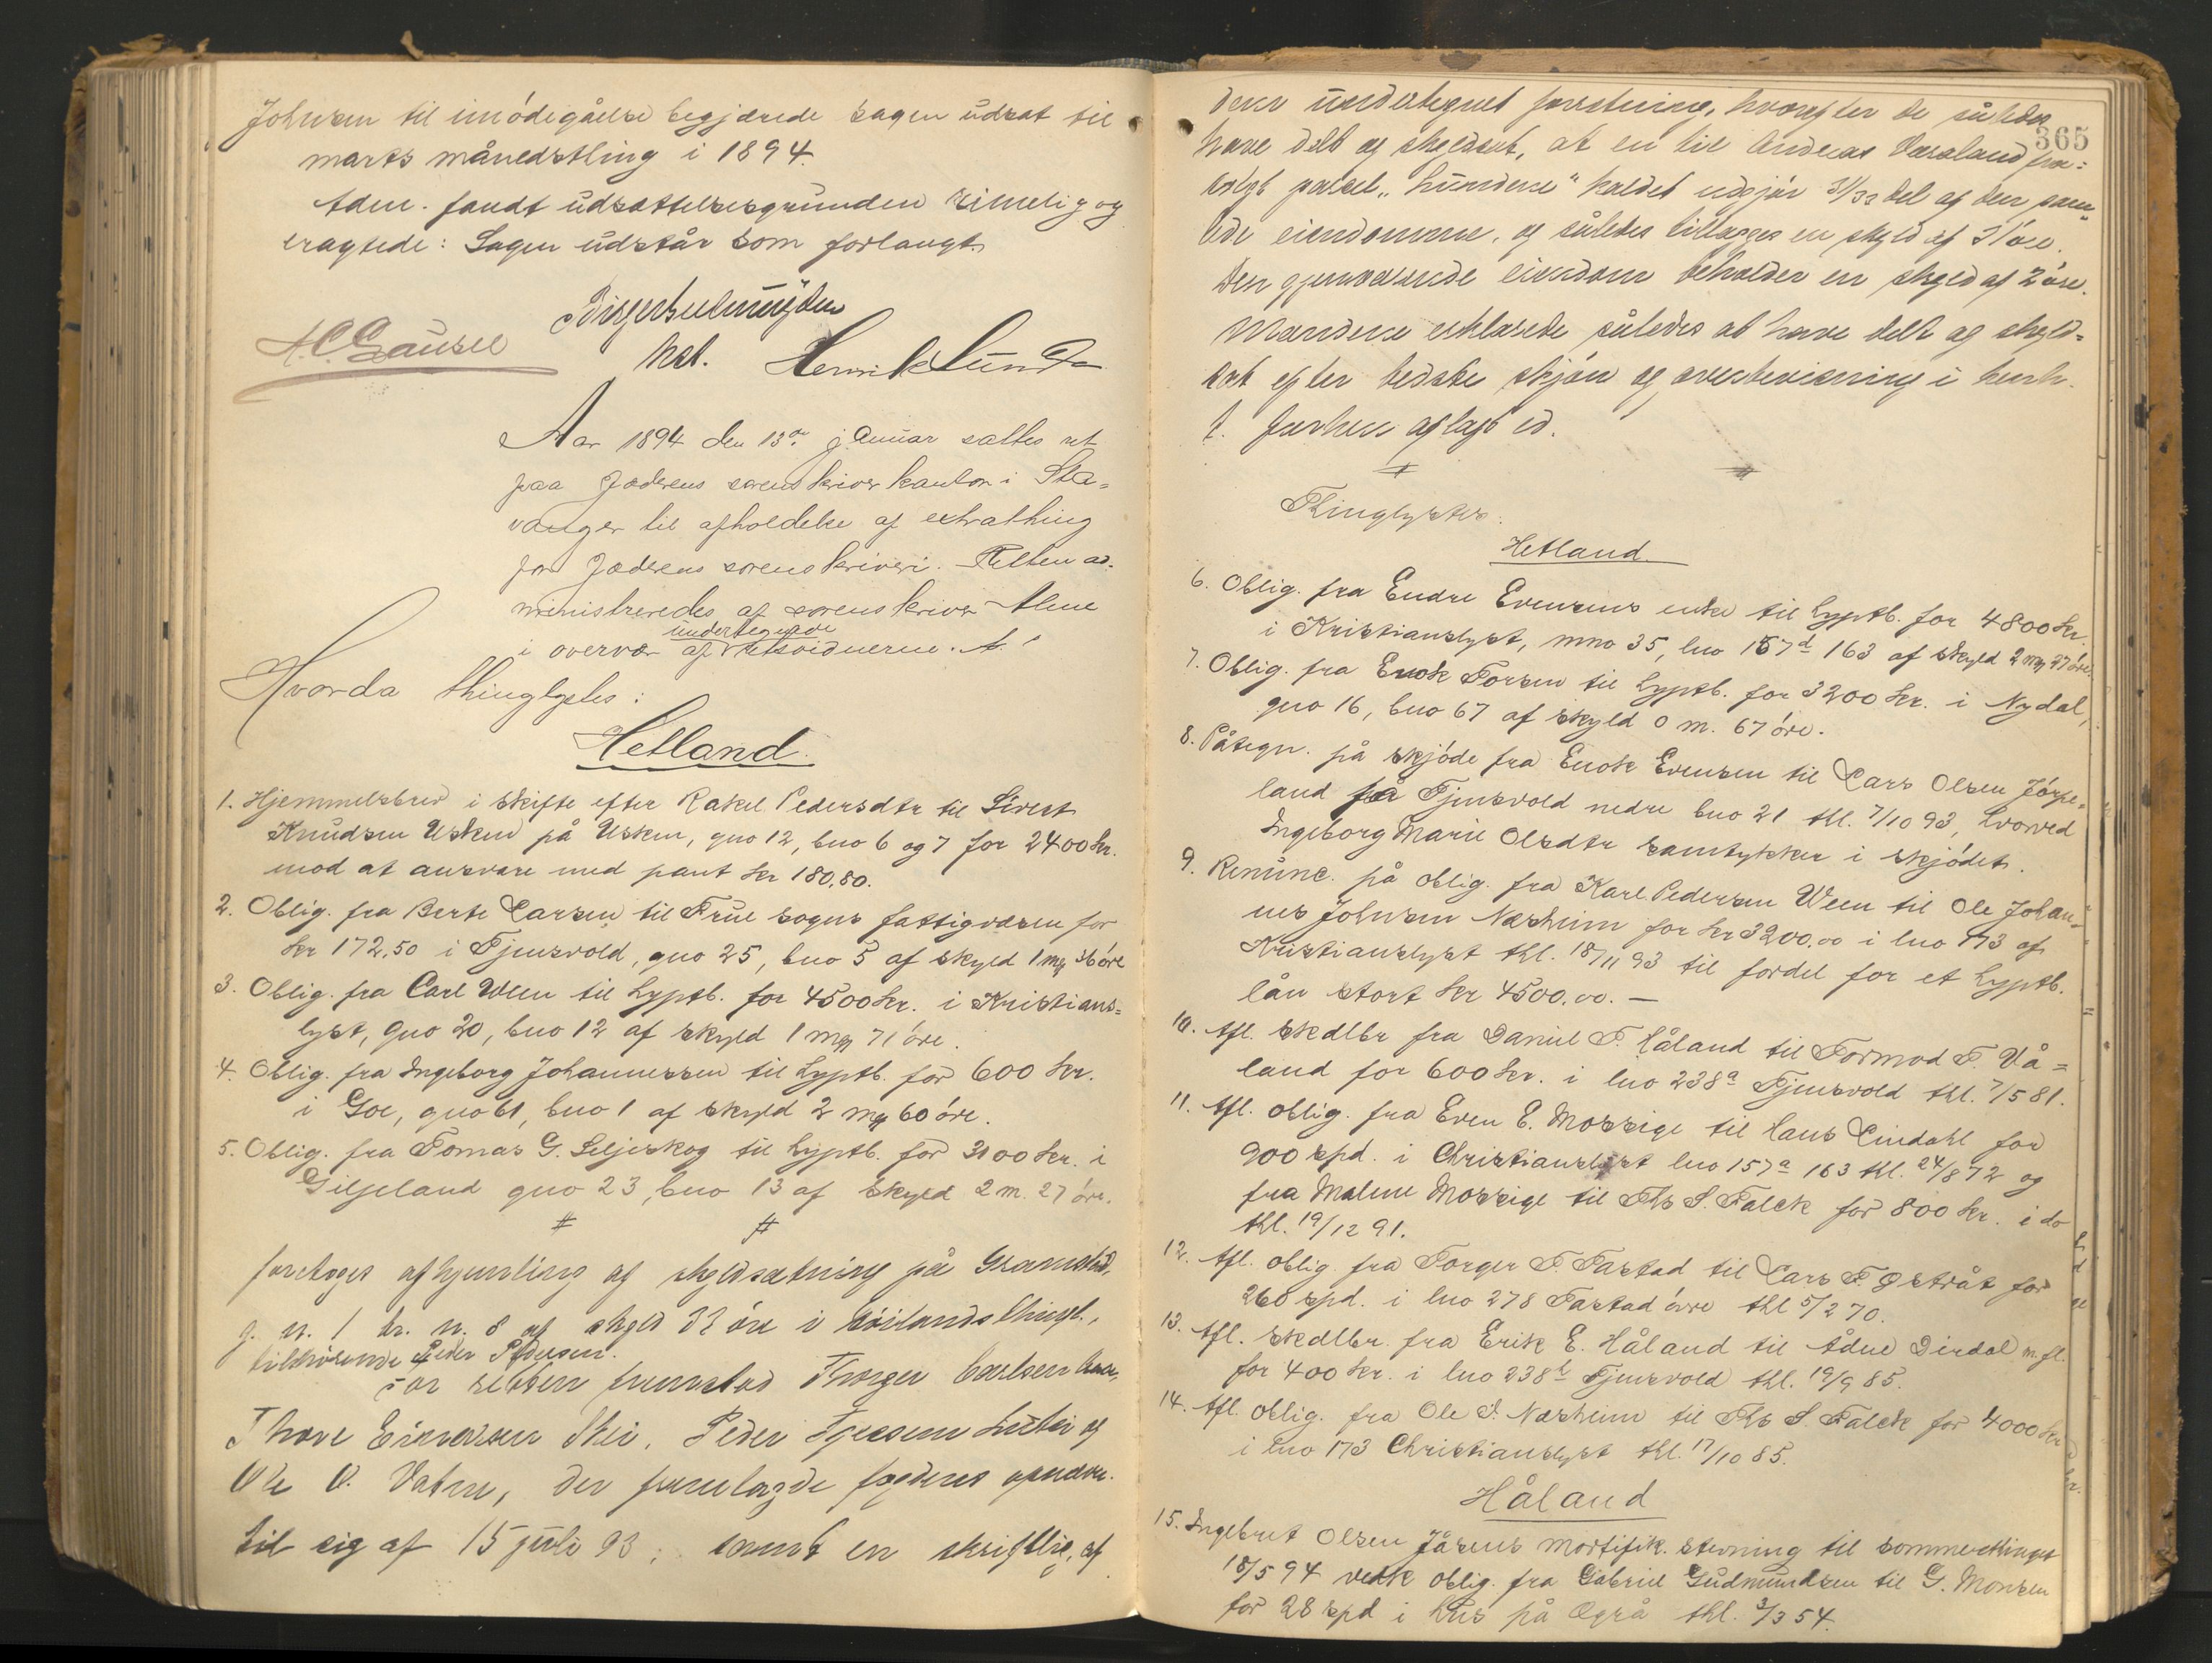 Johnsen til imödegåelse begjærede sagen udsat til
marts månedsthing i 1894.
Adm. fandt udsættelsesgrunden rimelig og
eragtede: Sagen udstår som forlangt.
A. C. Gausel
kst. Henrik Lund
Aar 1894 den 13de januar sattes ret
paa Jæderens sorenskriverkontor i Sta-
vanger til afholdelse af extrathing
for Jæderens sorenskriveri. Retten ad-
ministreredes af sorenskriver Alme
undertegnede
i overvær af retsvidnerne.
Hvorda thinglystes:
Hetland.
1. Hjemmelsbrev i skifte efter Rakel Pedersdtr til Sivert
Knudsen Usken på Usken, gno 12, bno 6 og 7 for 2400 kr.
mod at ansvare med pant kr 180,80.
2. Oblig. fra Berte Larsen til Frue sogns fattigvæsen for
kr 172,50 i Tjensvold, gno 25, bno 5 af skyld 1 mg 36 öre
3. Oblig. fra Carl Ween til hyptb. for 4500 kr. i Kristians-
lyst, gno 20, bno 12 af skyld 1 mg 71 öre.
4. Oblig. fra Ingeborg Johannessen til hyptb. for 600 kr.
i Goe, gno 61, bno 1 af skyld 2 mg 60 öre.
5. Oblig. fra Tomas G. Seljeskog til hyptb. for 3100 kr. i
Giljeland gno 23, bno 13 af skyld 2 m. 27 öre.
# #
foretoges afhjemling af skyldsætning på Gramstad,
g. n. 1 br. n. 8 af skyld 33 öre i Höilands thingl.,
tilhörende Peder Pedersen.
For retten fremstod Thorger Carlsen
Thore Einarsen Skei, Peder Tjersen Lutsi og
Ole O. Vatne, der fremlagde fogdens opnævn.
til sig af 15 juli 93; samt en skriftlig, af
365
dem undertegnet forretning, hvorefter de således
have delt og skyldsat, at en til Andreas Varaland fra-
solgt parcel "Hundene" kaldet udgjör 31/33 del af den sam-
lede eiendomme, og således tillægges en skyld af 31 öre.
Den gjenværende eiendom beholder en skyld af 2 öre.
Mændene erklærede således at have delt og skyld-
sat efter bedste skjön og overbevisning i henh.
t. forhen aflagt ed.
# #
Thinglystes:
Hetland
6. Oblig. fra Endre Evensens enke til hyptb. for 4800 kr.
i Kristianslyst, mno 35, lno 157d 163 af skyld 2 mg 27 öre.
7. Oblig. fra Enok Torsen til hyptb. for 3200 kr. i Nydal,
gno 16, bno 67 af skyld 0 m. 67 öre.
8. Påtegn. på skjöde fra Enok Evensen til Lars Olsen Jörpe-
land på Tjensvold nedre bno 21 thl. 7/10 93, hvorved
Ingeborg Marie Olsdtr samtykker i skjödet.
9. Renunc. på oblig. fra Karl Pedersen Ween til Ole Johan-
nes Johnsen Næsheim for kr 3200.00 i lno 173 af
Kristianslyst thl. 18/11 93 til fordel for et hyptb.
lån stort kr 4500.00. —
10. Afl. skdlbr fra Daniel T. Håland til Tormod T. Vå-
land for 600 kr. i lno 238a Tjensvold thl. 7/5 81.
11. Afl. oblig. fra Even E. Mossige til Hans Lindahl for
900 spd. i Christianslyst lno 157a 163 thl. 24/8 72 og
fra Malene Mossige til Ths S. Falck for 800 kr. i do
thl. 19/12 91.
12. Afl. oblig. fra Torger T. Tastad til Lars T. Østråt for
260 spd. i lno 278 Tastad övre thl 5/2 70.
13. Afl. skdlbr. fra Erik E. Håland til Ådne Dirdal m. fl.
for 400 kr. i lno 238b Tjensvold thl. 19/9 85.
14. Afl. oblig. fra Ole J. Næsheim til Ths S. Falck for 4000 kr
i lno 173 Christianslyst thl. 17/10 85.
Håland
15. Ingebret Olsen Jåsens mortifik. stevning til sommerthinget
18/5 94 vedk oblig. fra Gabriel Gudmundsen til G. Monsen
for 28 spd i hus på Ogrå thl. 3/3 54.